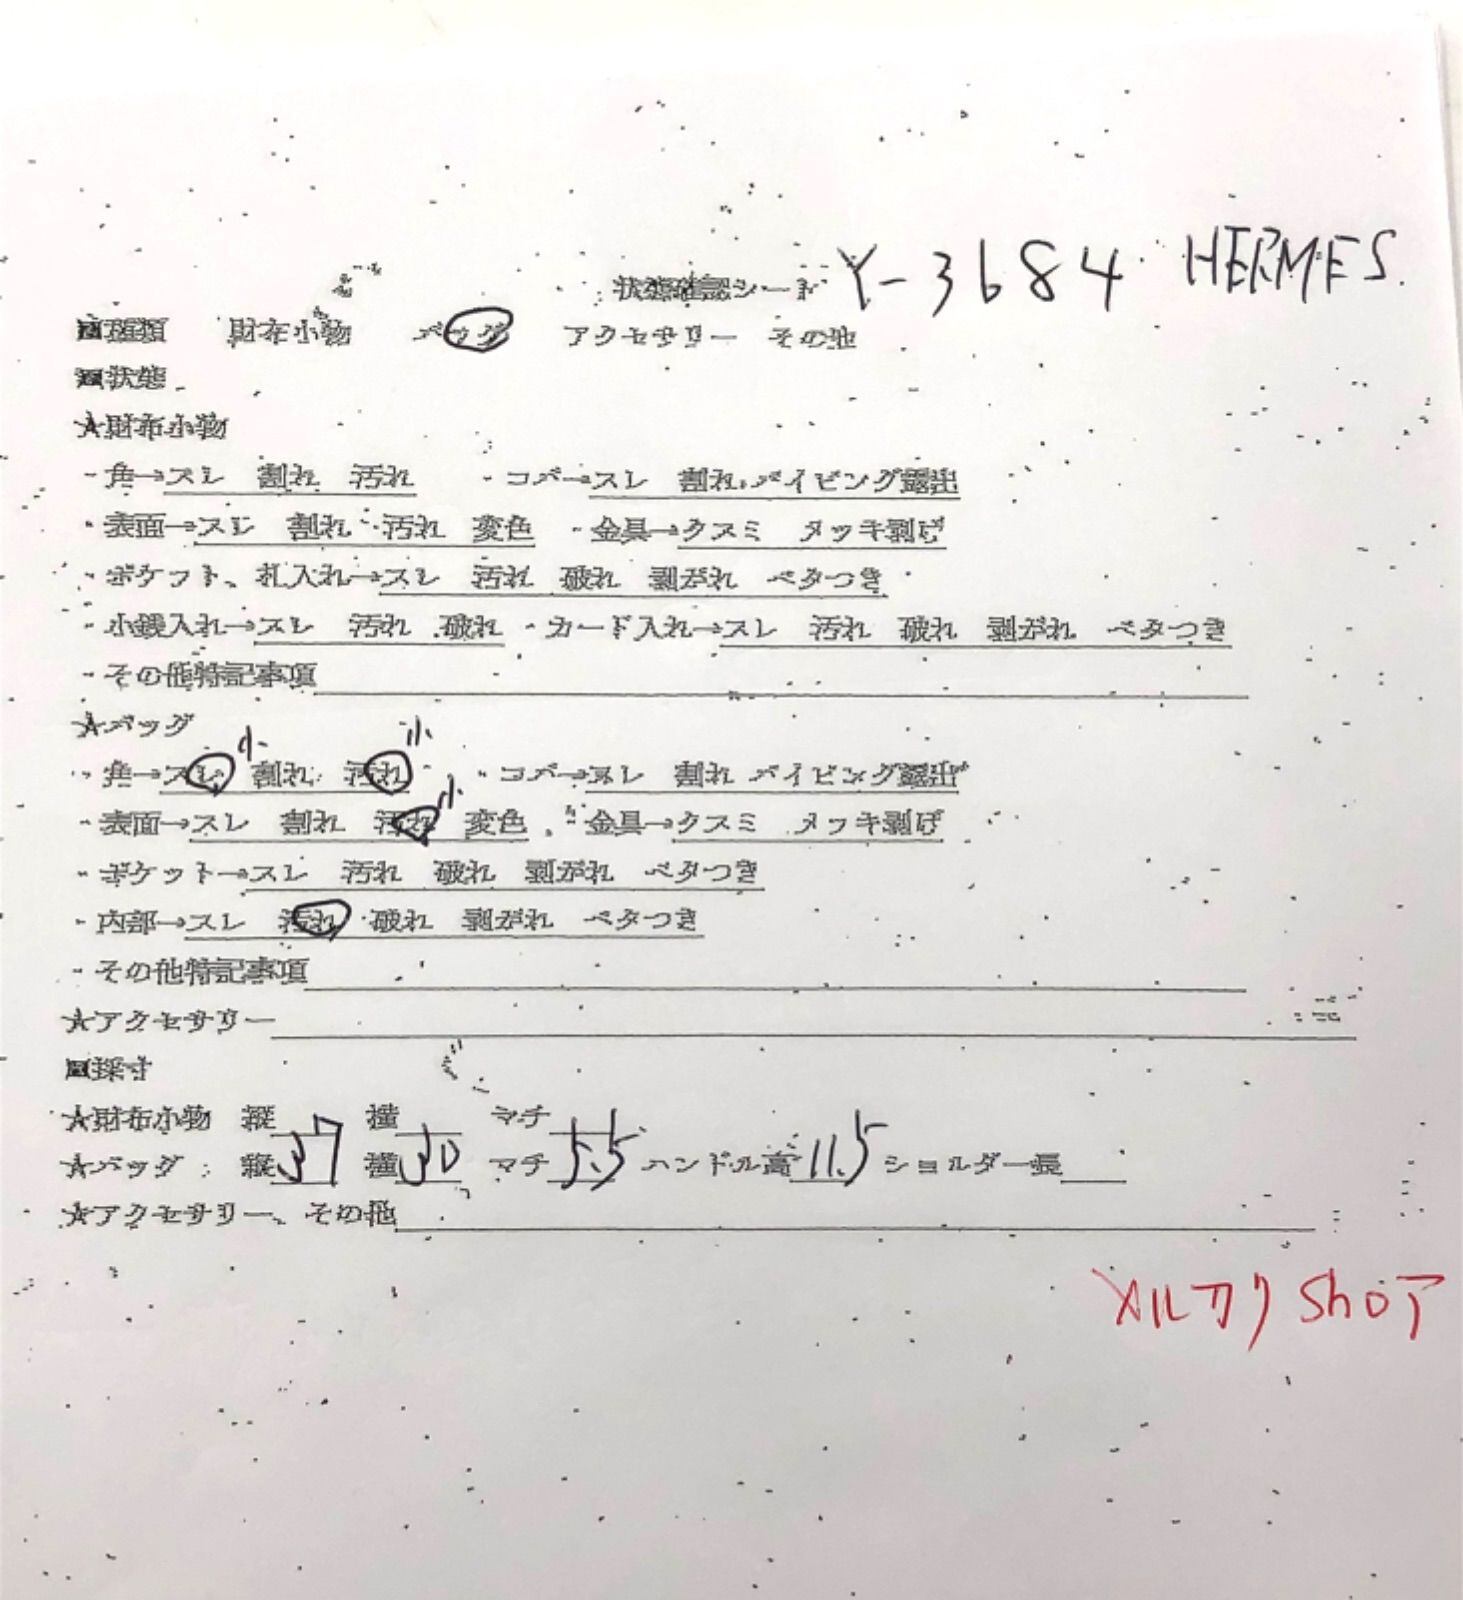 状態確認シート Y-3684 HERMES
■種類 財布小物 バッグ アクセサリー その他
■状態
★財布小物
・角→スレ 割れ 汚れ ・コバ→スレ 割れ パイピング露出
・表面→スレ 割れ 汚れ 変色 ・金具→クスミ メッキ剥げ
・ポケット、札入れ→スレ 汚れ 破れ 剥がれ ベタつき
・小銭入れ→スレ 汚れ 破れ ・カード入れ→スレ 汚れ 破れ 剥がれ ベタつき
・その他特記事項
★バッグ
小 小
・角→スレ 割れ 汚れ ・コバ→スレ 割れ パイピング露出
小
・表面→スレ 割れ 汚れ 変色 ・金具→クスミ メッキ剥げ
・ポケット→スレ 汚れ 破れ 剥がれ ベタつき
・内部→スレ 汚れ 破れ 剥がれ ベタつき
・その他特記事項
★アクセサリー
■採寸
★財布小物 縦 横 マチ
★バッグ 縦37 横30 マチ5.5 ハンドル高11.5 ショルダー長
★アクセサリー、その他
メルカリ Shop